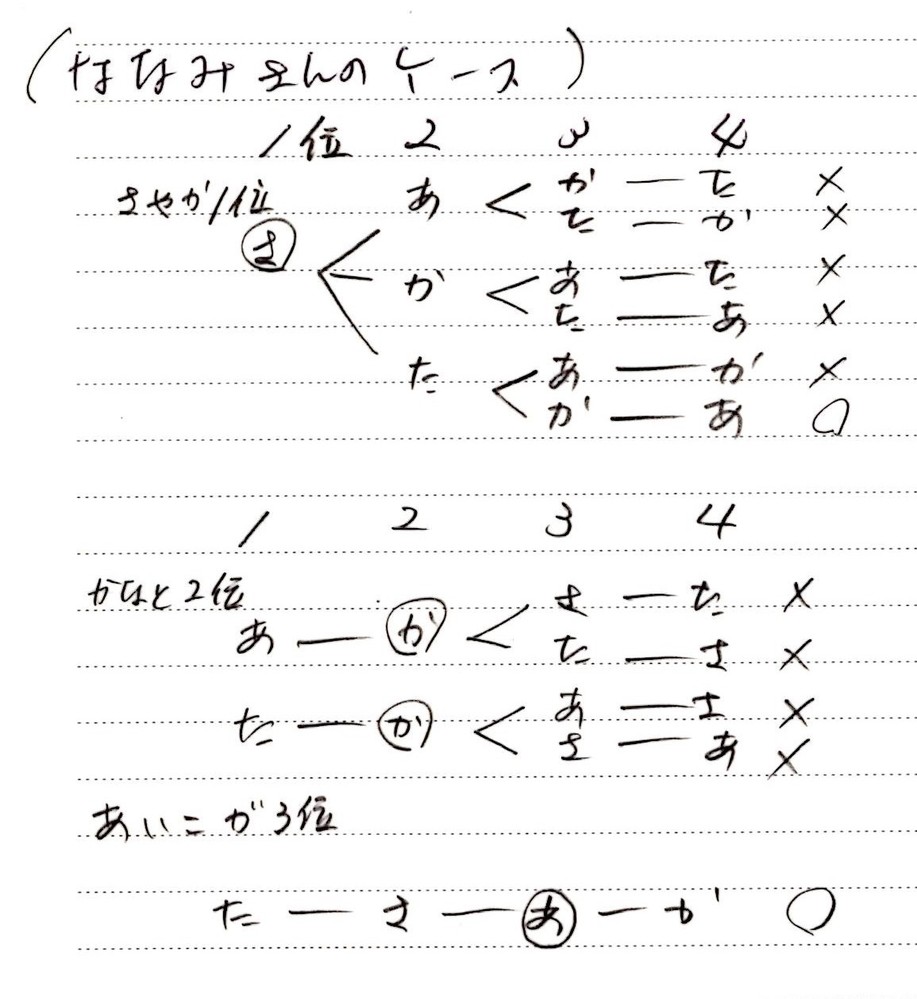 (ななみさんのケース)
1位 2 3 4
さやか1位 あ < か ー た ×
た ー か ×
さ < か < あ ー た ×
た ー あ ×
た < あ ー か ×
か ー あ ○
1 2 3 4
かなと2位 さ ー た ×
あ ー か < た ー さ ×
た ー か < あ ー さ ×
さ ー あ ×
あいこが3位
た ー さ ー あ ー か ○